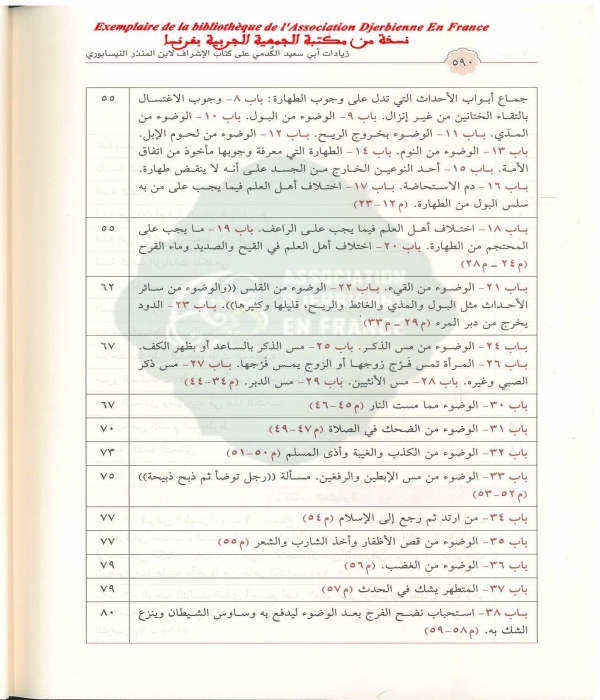 Exemplaire de la bibliothèque de l'Association Djerbienne En France
نسخة من مكتبة الجمعية الجربية بفرنسا
زيادات أبي سعيد الكدمي على كتاب الإشراف لابن المنذر النيسابوري
٥٩٠
جماع أبواب الأحداث التي تدل على وجوب الطهارة: باب ٨- وجوب الاغتسال ٥٥
بالتقاء الختانين من غير إنزال. باب ٩- الوضوء من البول. باب ١٠- الوضوء من
المذي. باب ١١- الوضوء بخروج الريح. باب ١٢- الوضوء من لحوم الإبل.
باب ١٣- الوضوء من النوم. باب ١٤- الطهارة التي معرفة وجوبها مأخوذ من اتفاق
الأمة. باب ١٥- أحد النوعين الخارج من الجسد على أنه لا ينقض طهارة.
باب ١٦- دم الاستحاضة. باب ١٧- اختلاف أهل العلم فيما يجب على من به
سلس البول من الطهارة. (م١٢-٢٣)
باب ١٨- اختلاف أهل العلم فيما يجب على الراعف. باب ١٩- ما يجب على ٥٥
المحتجم من الطهارة. باب ٢٠- اختلاف أهل العلم في القيح والصديد وماء القرح
(م٢٤ - م٢٨)
باب ٢١- الوضوء من القيء. باب ٢٢- الوضوء من القلس ((والوضوء من سائر ٦٢
الأحداث مثل البول والمذي والغائط والريح، قليلها وكثيرها)). باب ٢٣- الدود
يخرج من دبر المرء (م٢٩ - م٣٣)
باب ٢٤- الوضوء من مس الذكر. باب ٢٥- مس الذكر بالساعد أو بظهر الكف. ٦٧
باب ٢٦- المرأة تمس فَرْج زوجها أو الزوج يمس فَرْجها. باب ٢٧- مس ذكر
الصبي وغيره. باب ٢٨- مس الأنثيين. باب ٢٩- مس الدبر. (م٣٤-٤٤)
باب ٣٠- الوضوء مما مست النار (م٤٥-٤٦) ٦٧
باب ٣١- الوضوء من الضحك في الصلاة (م٤٧-٤٩) ٧٠
باب ٣٢- الوضوء من الكذب والغيبة وأذى المسلم (م٥٠-٥١) ٧٣
باب ٣٣- الوضوء من مس الإبطين والرفغين. مسألة ((رجل توضأ ثم ذبح ذبيحة)) ٧٥
(م٥٢-٥٣)
باب ٣٤- من ارتد ثم رجع إلى الإسلام (م٥٤) ٧٧
باب ٣٥- الوضوء من قص الأظفار وأخذ الشارب والشعر (م٥٥) ٧٧
باب ٣٦- الوضوء من الغضب. (م٥٦) ٧٩
باب ٣٧- المتطهر يشك في الحدث (م٥٧) ٧٩
باب ٣٨- استحباب نضح الفرج بعد الوضوء ليدفع به وساوس الشيطان وينزع ٨٠
الشك به. (م٥٨-٥٩)
ASSOCIATION
EN FRANCE